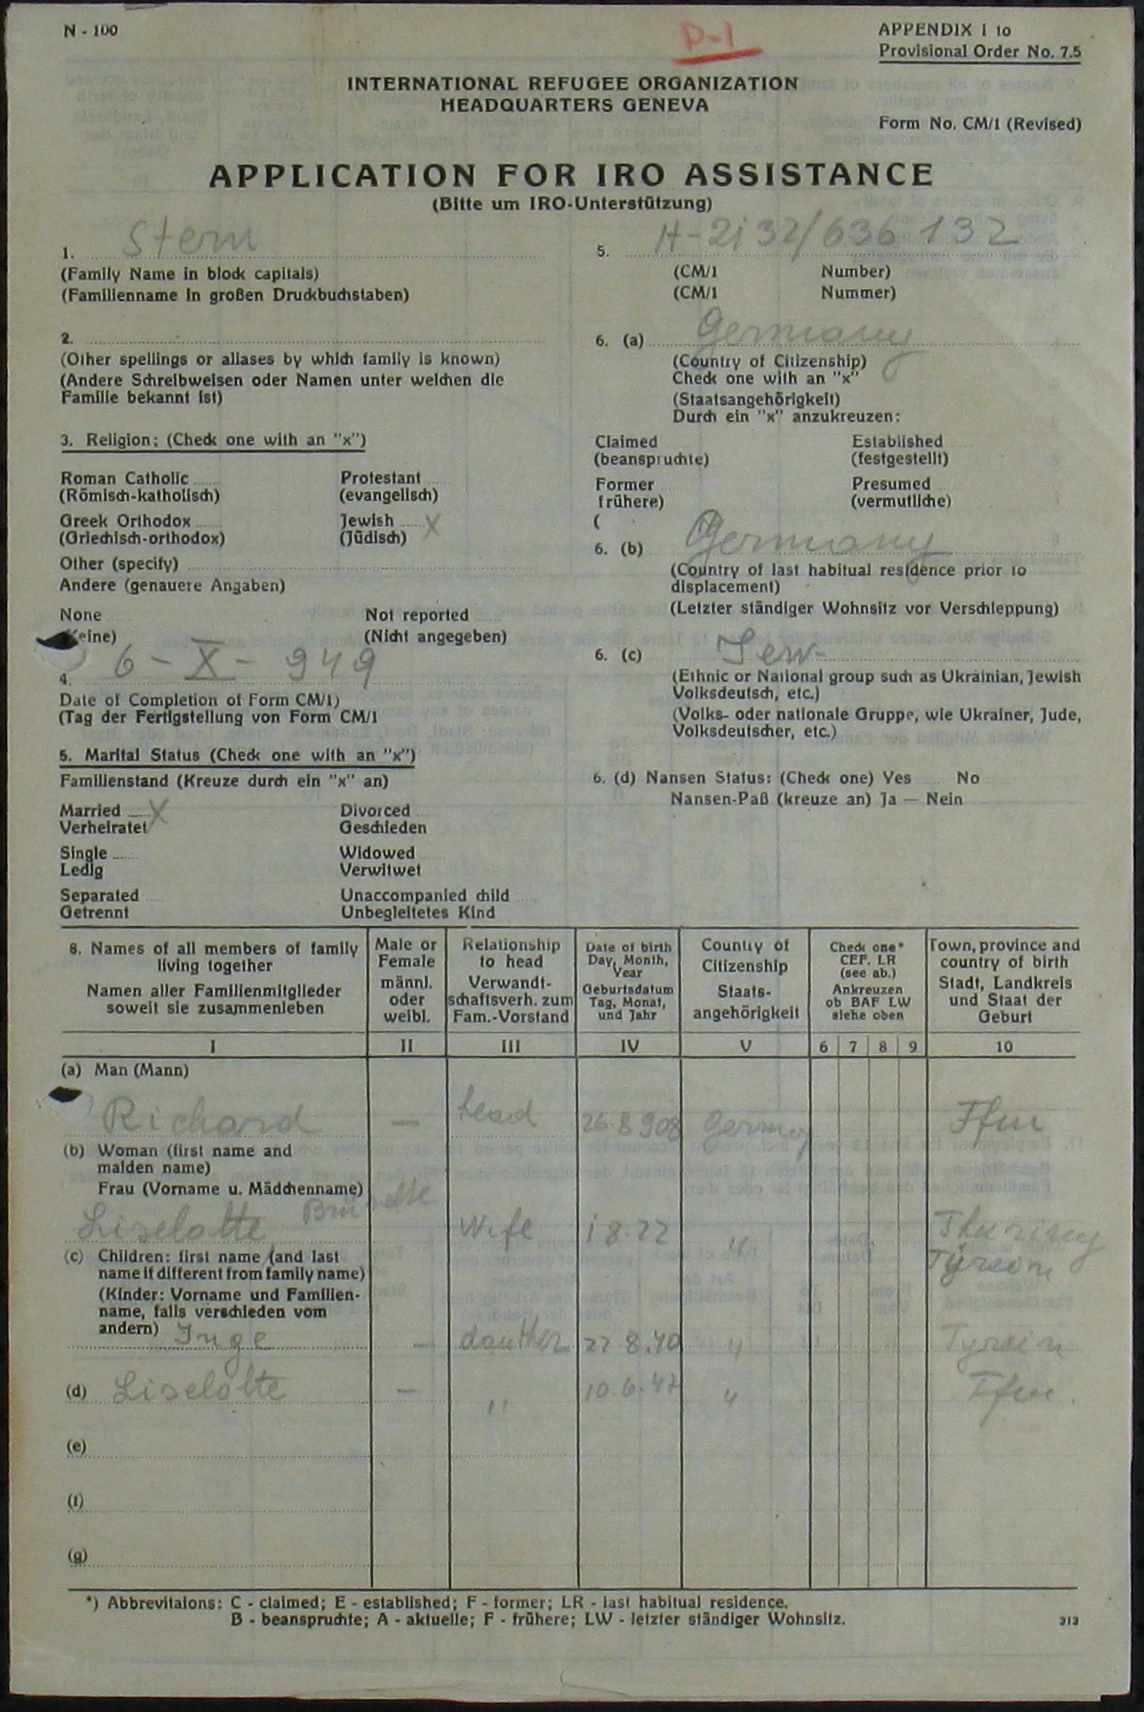 N - 100
D-1
APPENDIX I to
Provisional Order No. 7.5
INTERNATIONAL REFUGEE ORGANIZATION
HEADQUARTERS GENEVA
Form No. CM/1 (Revised)
APPLICATION FOR IRO ASSISTANCE
(Bitte um IRO-Unterstützung)
1. Stern
(Family Name in block capitals)
(Familienname in großen Druckbuchstaben)
2.
(Other spellings or aliases by which family is known)
(Andere Schreibweisen oder Namen unter welchen die
Familie bekannt ist)
3. Religion; (Check one with an "x")
Roman Catholic Protestant
(Römisch-katholisch) (evangelisch)
Greek Orthodox Jewish X
(Griechisch-orthodox) (Jüdisch)
Other (specify)
Andere (genauere Angaben)
None Not reported
Keine) (Nicht angegeben)
4. 6 - X - 949
Date of Completion of Form CM/1)
(Tag der Fertigstellung von Form CM/1
5. Marital Status (Check one with an "x")
Familienstand (Kreuze durch ein "x" an)
Married X Divorced
Verheiratet Geschieden
Single Widowed
Ledig Verwitwet
Separated Unaccompanied child
Getrennt Unbegleitetes Kind
5. H-2i32/636 132
(CM/1 Number)
(CM/1 Nummer)
6. (a) Germany
(Country of Citizenship)
Check one with an "x"
(Staatsangehörigkeit)
Durch ein "x" anzukreuzen:
Claimed Established
(beanspruchte) (festgestellt)
Former Presumed
frühere) (vermutliche)
(
6. (b) Germany
(Country of last habitual residence prior to
displacement)
(Letzter ständiger Wohnsitz vor Verschleppung)
6. (c) Jew-
(Ethnic or National group such as Ukrainian, Jewish
Volksdeutsch, etc.)
(Volks- oder nationale Gruppe, wie Ukrainer, Jude,
Volksdeutscher, etc.)
6. (d) Nansen Status: (Check one) Yes No
Nansen-Paß (kreuze an) Ja — Nein
8. Names of all members of family
living together
Namen aller Familienmitglieder
soweit sie zusammenleben
Male or
Female
männl.
oder
weibl.
Relationship
to head
Verwandt-
schaftsverh. zum
Fam.-Vorstand
Date of birth
Day, Month,
Year
Geburtsdatum
Tag, Monat,
und Jahr
Country of
Citizenship
Staats-
angehörigkeit
Check one*
CEF. LR
(see ab.)
Ankreuzen
ob BAF LW
siehe oben
Town, province and
country of birth
Stadt, Landkreis
und Staat der
Geburt
I II III IV V 6 7 8 9 10
(a) Man (Mann)
Richard — head 26.8 908 Germany Ffm
(b) Woman (first name and
maiden name)
Frau (Vorname u. Mädchenname)
Liselotte Wife 1 8.22 " 
(c) Children: first name (and last
name if different from family name)
(Kinder: Vorname und Familien-
name, falls verschieden vom
andern) Inge — dauther 22 8.40 "
(d) Liselotte — " 10.6.47 " Ffm.
(e)
(f)
(g)
*) Abbrevitaions: C - claimed; E - established; F - former; LR - last habitual residence.
B - beanspruchte; A - aktuelle; F - frühere; LW - letzter ständiger Wohnsitz.
313